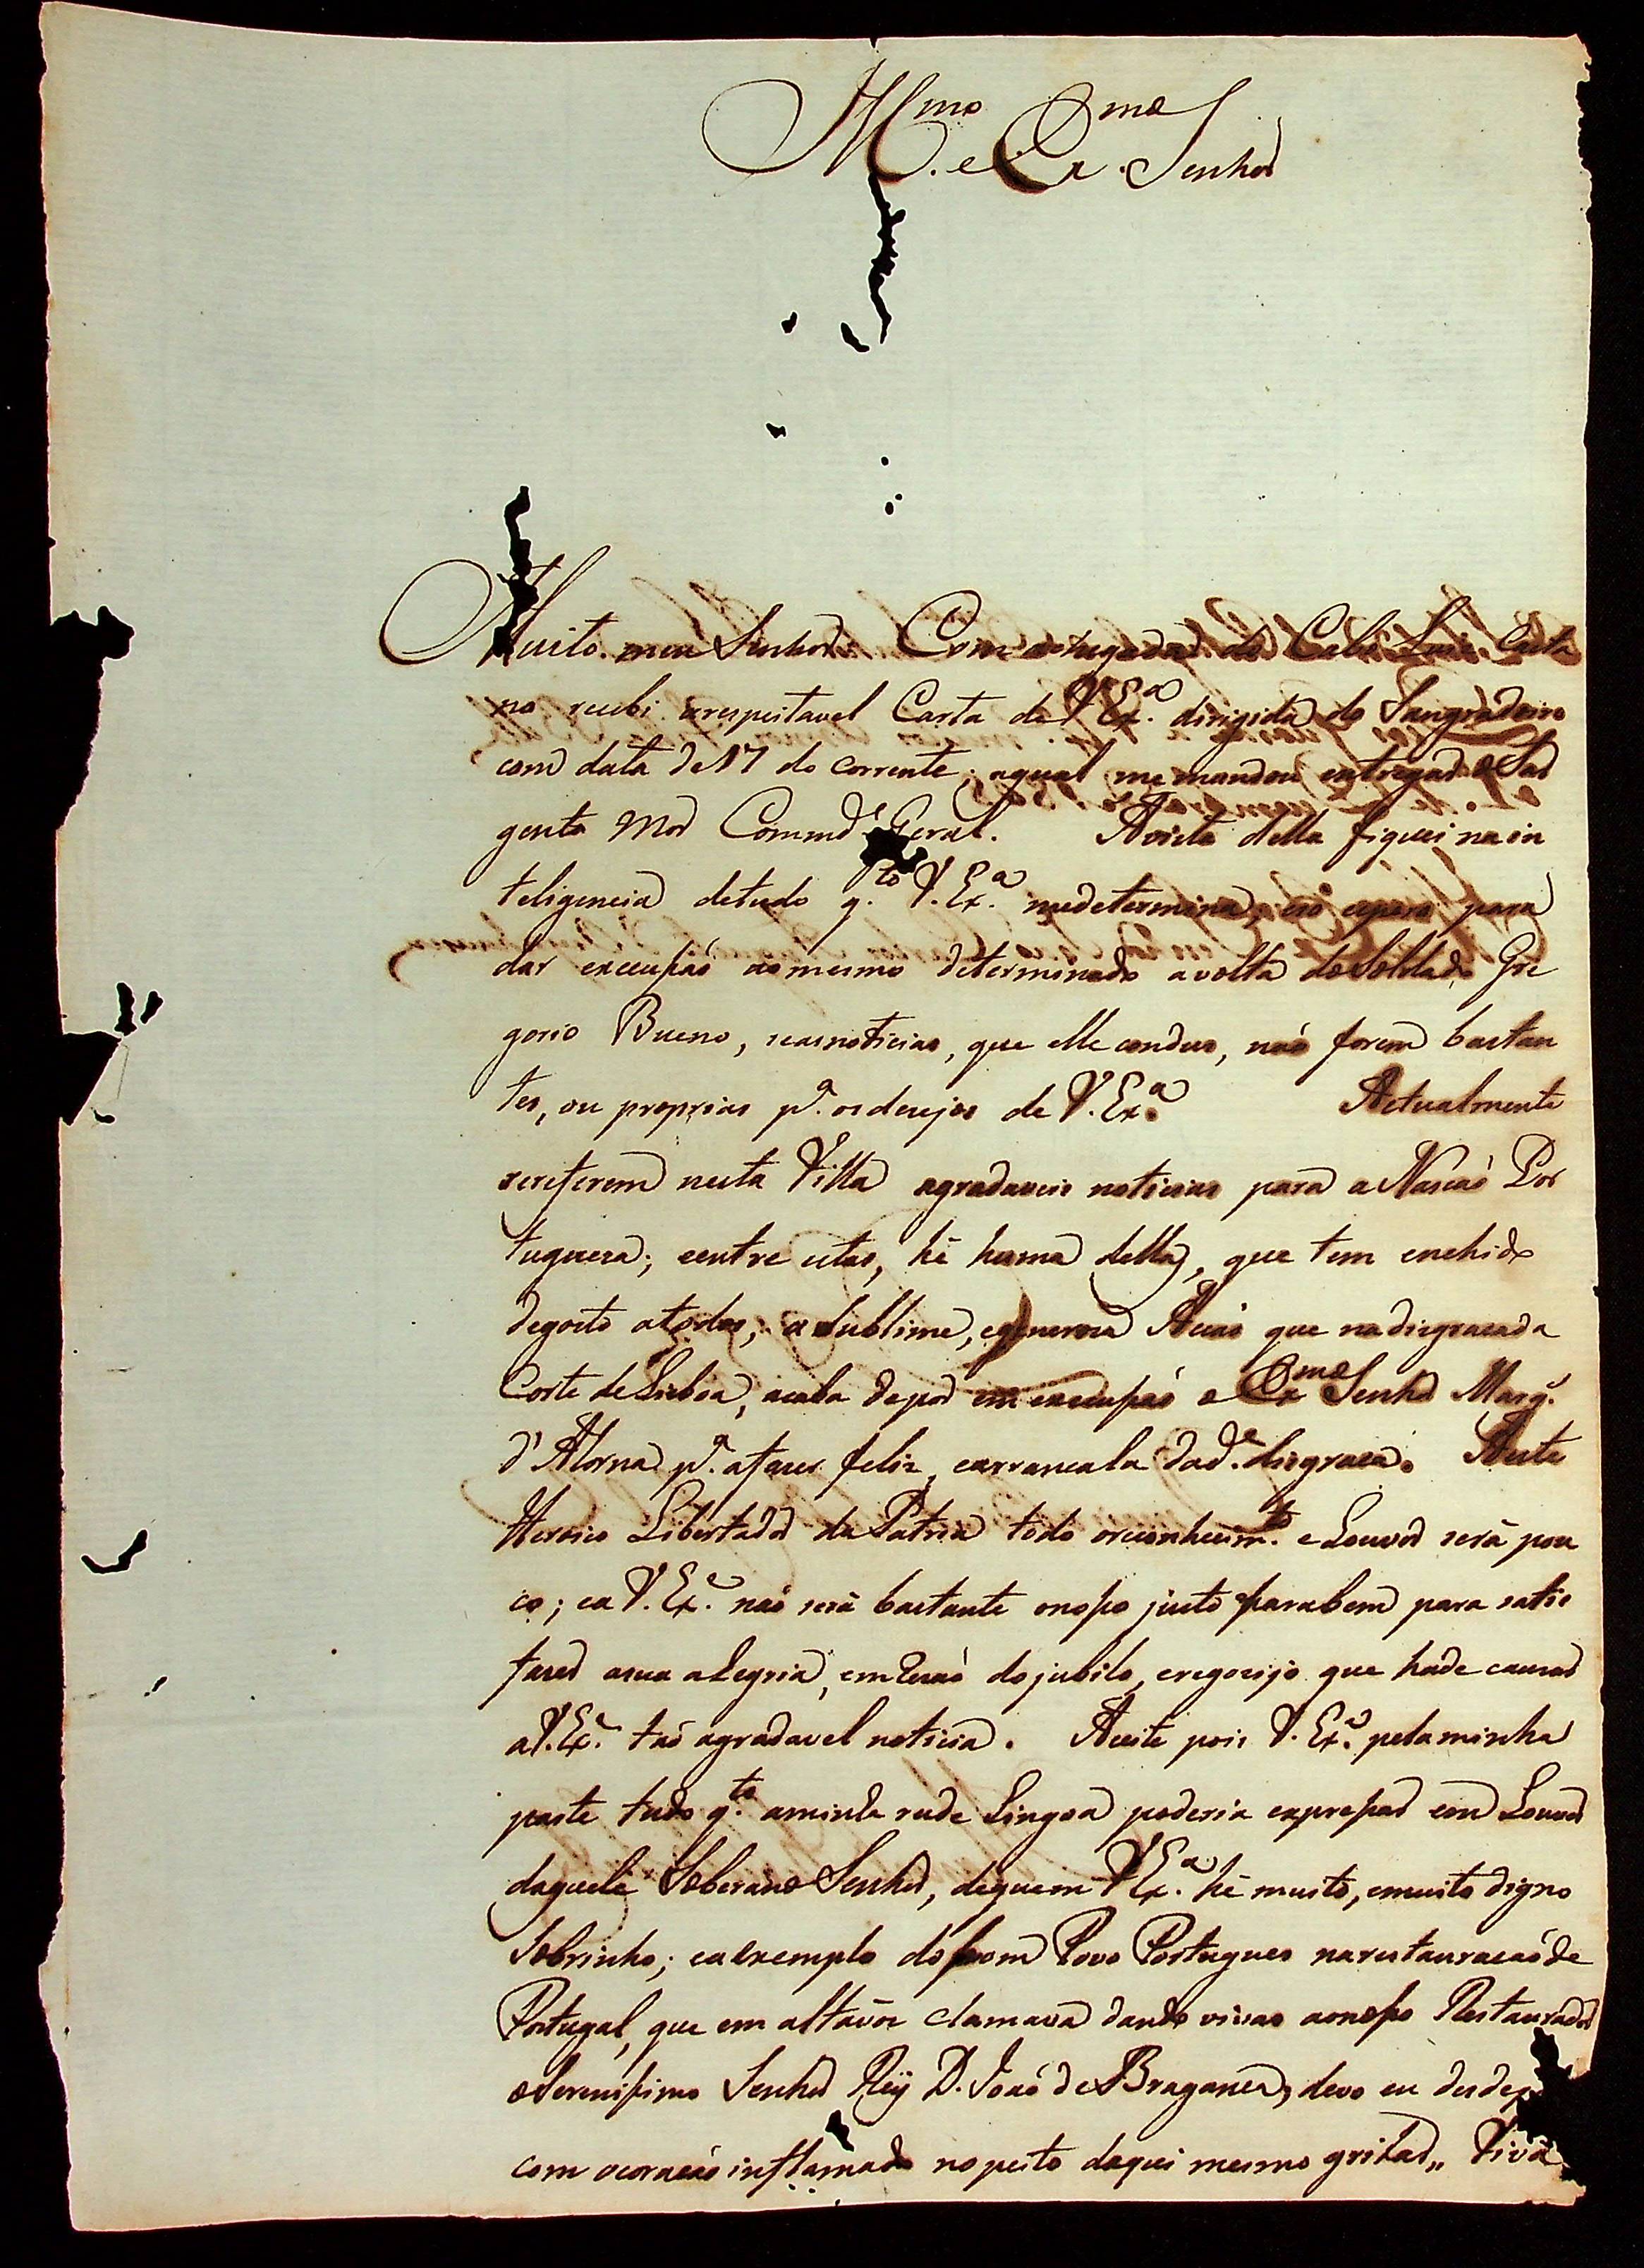 Ill.mo e Ex.mo Senhor
Muito meu Senhor. Com a chegada do Cabo Luis Caeta
no recebi a respeitavel Carta de V. Ex.ª dirigida do Sangradoiro
com data de 17 do corrente, a qual me mandou entregar o Sar
gento Mor Commd.e Geral. A vista della fiquei na in
teligencia de tudo q.to V. Ex.ª me determina, e só espero para
dar execusaó ao mesmo determinado a volta do Soldado Gre
gorio Bueno, se as noticias, que elle condus, naó forem bastan
tes, ou proprias p.ª os desejos de V. Ex.ª Actualmente
se referem nesta Villa agradaveis noticias para a Nasaó Por
tugueza; e entre estas, hé huma della, que tem enchido
de gosto a todos, a sublime, e generoza Acaó que na disgracada
Corte de Lisboa, acaba de por em execusaó o Ex.mo Senhor Marq.
d'Alorna p.ª a fazer feliz, e arrancala da d.e disgraca. A este
Heroico Libertador da Patria todo o reconhecim.to e Louvor será pou
co; e a V. Ex.ª naó será bastante o nosso justo parabem para satis
fazer a sua alegria, em do jubilo, e regozijo que hade causar
a V. Ex.ª taó agradavel noticia. Aceite pois V. Ex.ª pela minha
parte tudo q.to a minha rude Lingoa poderia expressar em Louvor
daquele Soberano Senhor, de quem V. Ex.ª hé muito, e muito digno
Sobrinho; e a exemplo do bom Povo Portugues na restauracaó de
Portugal, que em alta vóz clamava dando vivas ao nosso Restaurador
o Serenissimo Senhor Rey D. Joaó de Braganca, devo eu desde
com o coracaó inflamado no peito daqui mesmo gritar,, Viva